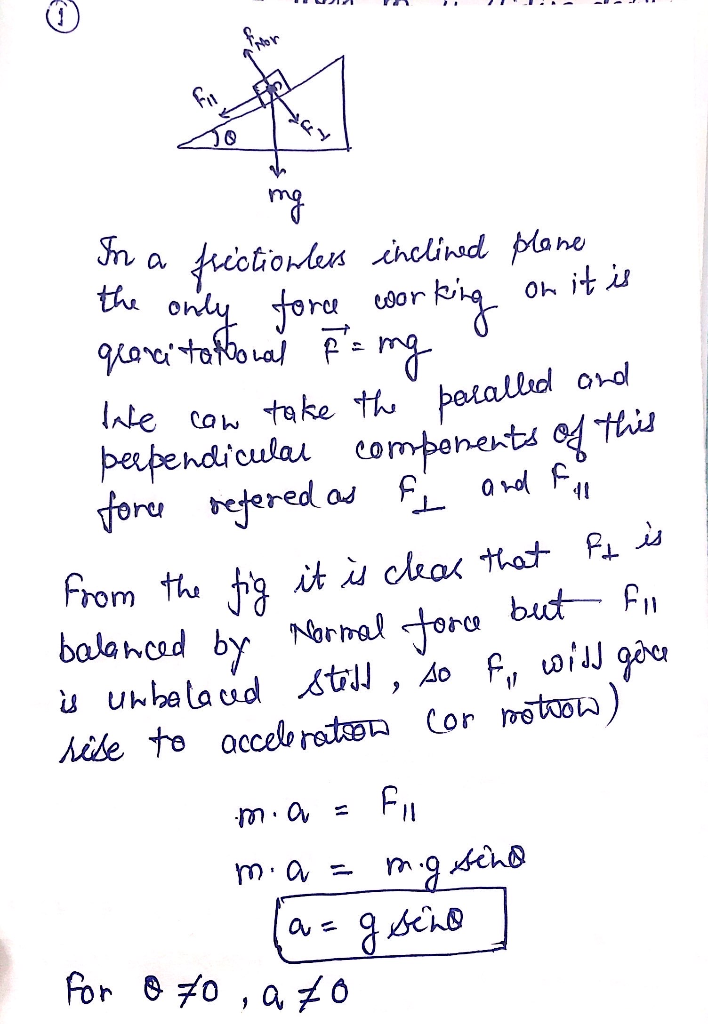 1
FNor
F||
F⊥
θ
mg
In a frictionless inclined plane
the only force working on it is
gravitational F⃗ = mg
We can take the paralled and
perpendicular components of this
force refered as F⊥ and F||
From the fig it is clear that F⊥ is
balanced by Normal force but F||
is unbalaced still, so F|| will give
rise to acceleration (or motion)
m.a = F||
m.a = m.g sinθ
a = g sinθ
For θ ≠ 0, a ≠ 0